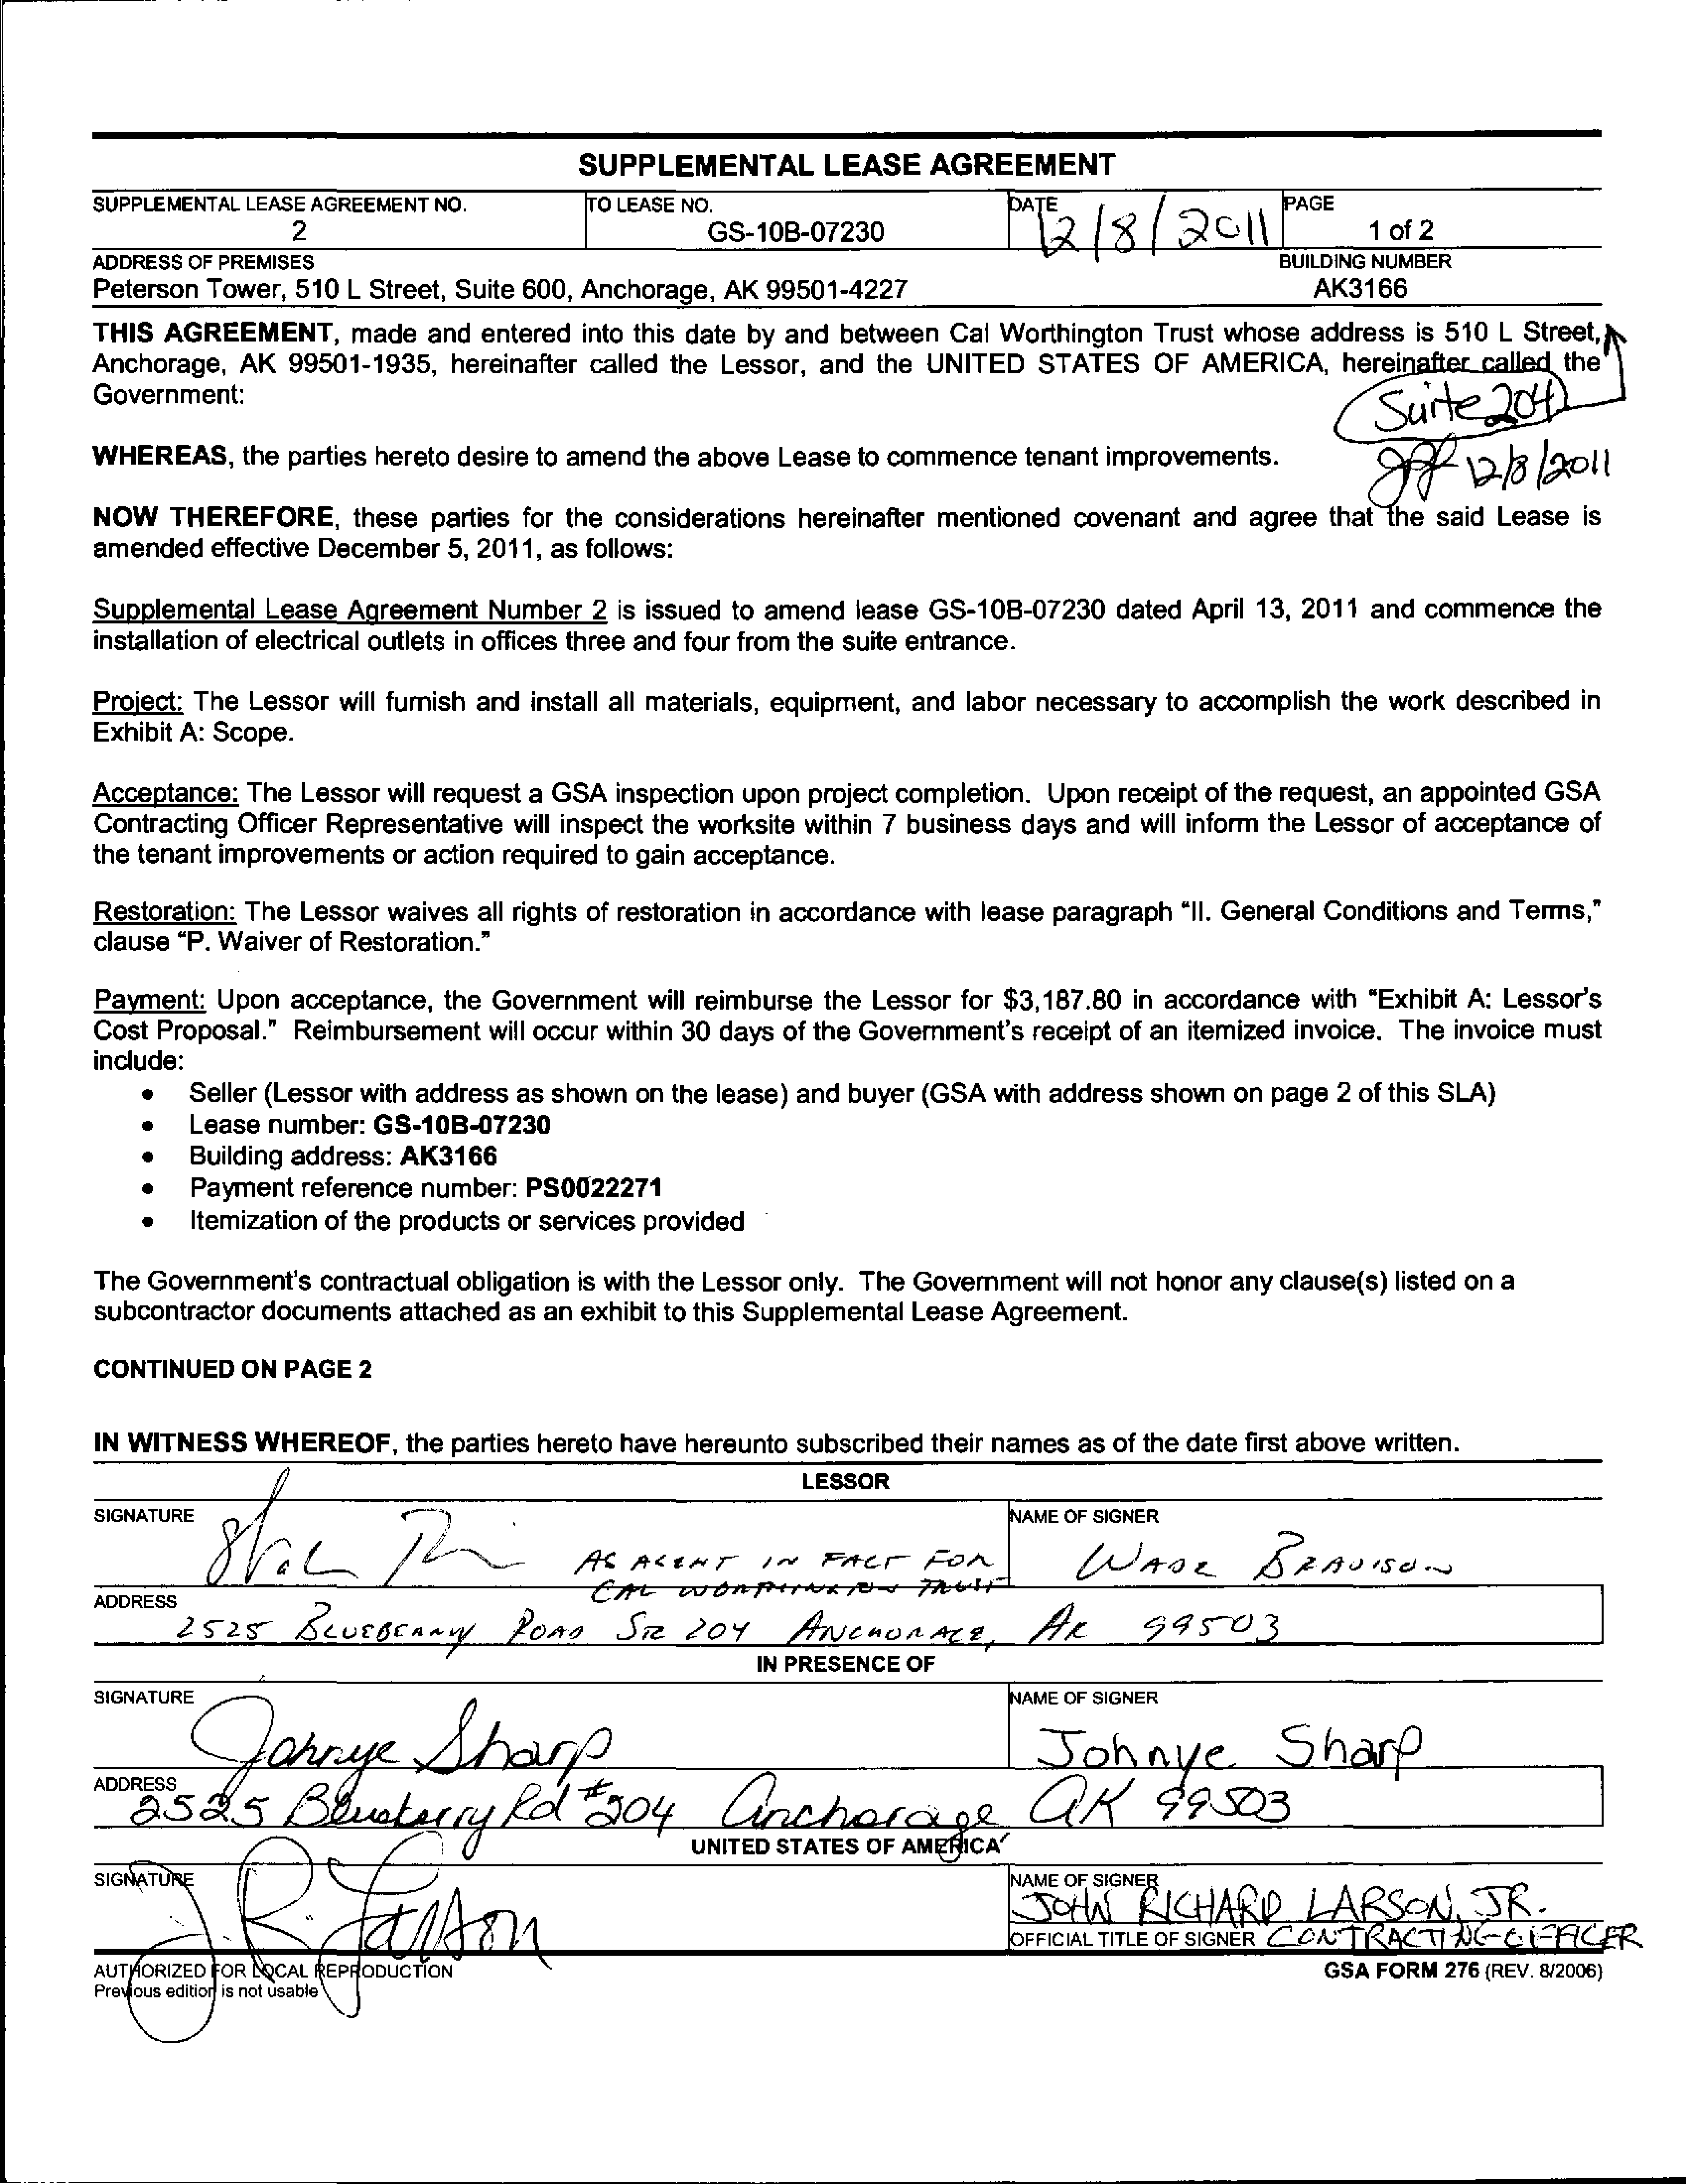 SUPPLEMENTAL LEASE AGREEMENT
SUPPLEMENTAL LEASE AGREEMENT NO.
2
TO LEASE NO.
GS-10B-07230
DATE
12/8/2011
PAGE
1 of 2
ADDRESS OF PREMISES
Peterson Tower, 510 L Street, Suite 600, Anchorage, AK 99501-4227
BUILDING NUMBER
AK3166
THIS AGREEMENT, made and entered into this date by and between Cal Worthington Trust whose address is 510 L Street,
Anchorage, AK 99501-1935, hereinafter called the Lessor, and the UNITED STATES OF AMERICA, hereinafter called the
Government:
Suite 204
12/8/2011
WHEREAS, the parties hereto desire to amend the above Lease to commence tenant improvements.
NOW THEREFORE, these parties for the considerations hereinafter mentioned covenant and agree that the said Lease is
amended effective December 5, 2011, as follows:
Supplemental Lease Agreement Number 2 is issued to amend lease GS-10B-07230 dated April 13, 2011 and commence the
installation of electrical outlets in offices three and four from the suite entrance.
Project: The Lessor will furnish and install all materials, equipment, and labor necessary to accomplish the work described in
Exhibit A: Scope.
Acceptance: The Lessor will request a GSA inspection upon project completion. Upon receipt of the request, an appointed GSA
Contracting Officer Representative will inspect the worksite within 7 business days and will inform the Lessor of acceptance of
the tenant improvements or action required to gain acceptance.
Restoration: The Lessor waives all rights of restoration in accordance with lease paragraph "II. General Conditions and Terms,"
clause "P. Waiver of Restoration."
Payment: Upon acceptance, the Government will reimburse the Lessor for $3,187.80 in accordance with "Exhibit A: Lessor's
Cost Proposal." Reimbursement will occur within 30 days of the Government's receipt of an itemized invoice. The invoice must
include:
• Seller (Lessor with address as shown on the lease) and buyer (GSA with address shown on page 2 of this SLA)
• Lease number: GS-10B-07230
• Building address: AK3166
• Payment reference number: PS0022271
• Itemization of the products or services provided
The Government's contractual obligation is with the Lessor only. The Government will not honor any clause(s) listed on a
subcontractor documents attached as an exhibit to this Supplemental Lease Agreement.
CONTINUED ON PAGE 2
IN WITNESS WHEREOF, the parties hereto have hereunto subscribed their names as of the date first above written.
LESSOR
SIGNATURE
AS AGENT IN FACT FOR
CAL WORTHINGTON TRUST
NAME OF SIGNER
WADE
ADDRESS
2525 BLUEBERRY ROAD STE 204 ANCHORAGE, AK 99503
IN PRESENCE OF
SIGNATURE
Johnye Sharp
NAME OF SIGNER
Johnye Sharp
ADDRESS
2525 Blueberry Rd #204 Anchorage AK 99503
UNITED STATES OF AMERICA
SIGNATURE
J R Larson
NAME OF SIGNER
JOHN RICHARD LARSON, JR.
OFFICIAL TITLE OF SIGNER CONTRACTING OFFICER
AUTHORIZED FOR LOCAL REPRODUCTION
Previous edition is not usable
GSA FORM 276 (REV. 8/2006)